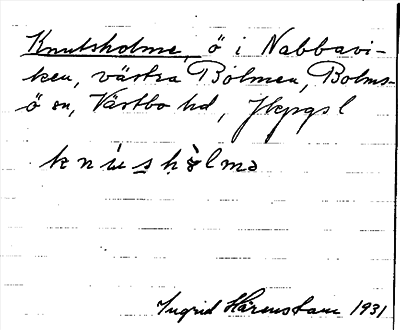 Knutsholme, ö i Nabbavi-
ken, västra Bolmen, Bolms-
ö sn, Västbo hd, Jkpgs l
Ingrid Härenstam 1931